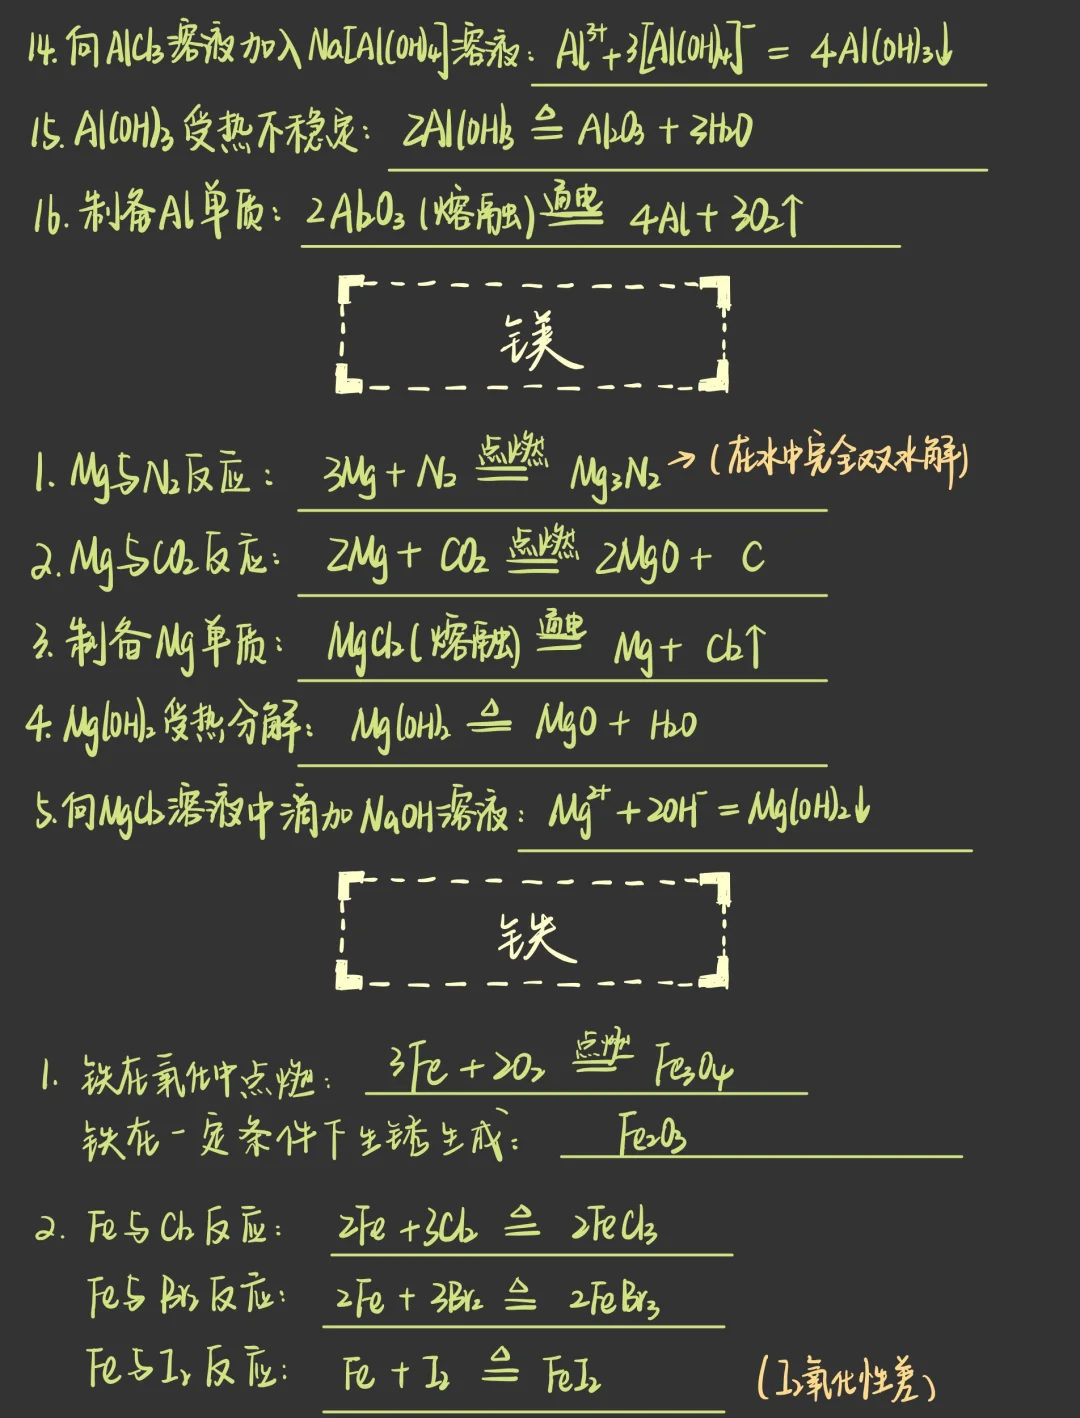 14. 向AlCl₃溶液加入Na[Al(OH)₄]溶液: Al³⁺+3[Al(OH)₄]⁻ = 4Al(OH)₃↓
15. Al(OH)₃受热不稳定: 2Al(OH)₃ ≜ Al₂O₃ + 3H₂O
16. 制备Al单质: 2Al₂O₃(熔融) 通电 4Al + 3O₂↑
镁
1. Mg与N₂反应: 3Mg + N₂ 点燃 Mg₃N₂ → (在水中完全双水解)
2. Mg与CO₂反应: 2Mg + CO₂ 点燃 2MgO + C
3. 制备Mg单质: MgCl₂(熔融) 通电 Mg + Cl₂↑
4. Mg(OH)₂受热分解: Mg(OH)₂ ≜ MgO + H₂O
5. 向MgCl₂溶液中滴加NaOH溶液: Mg²⁺ + 2OH⁻ = Mg(OH)₂↓
铁
1. 铁在氧化中点燃: 3Fe + 2O₂ 点燃 Fe₃O₄
铁在一定条件下生锈生成: Fe₂O₃
2. Fe与Cl₂反应: 2Fe + 3Cl₂ ≜ 2FeCl₃
Fe与Br₂反应: 2Fe + 3Br₂ ≜ 2FeBr₃
Fe与I₂反应: Fe + I₂ ≜ FeI₂ (I₂氧化性差)